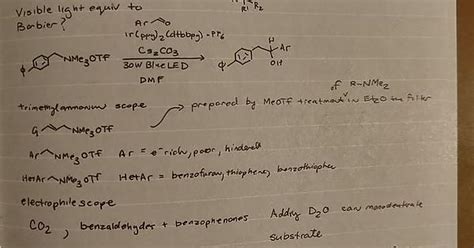 Visible light equiv to
Barbier?
R1 R2
Ar O
Ir(ppy)2(dtbbpy)·PF6
Cs2CO3
30W Blue LED
DMF
NMe3OTf
H
Ar
OH
Φ
Φ
trimethylammonium scope
prepared by MeOTf treatment of R-NMe2 in Et2O then filter
G NMe3OTf
Ar NMe3OTf Ar = e- rich, poor, hindered
HetAr NMe3OTf HetAr = benzofuran, thiophene, benzothiophene
electrophile scope
CO2, benzaldehydes + benzophenones
Adding D2O can monodeuterate
substrate